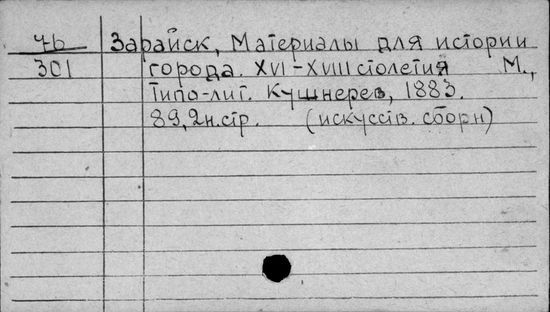 76 Зарайск, Материалы для истории
301 города. XVI-XVIII столетия М.,
Типо-лит. Кушнерев, 1883.
89, 2н.стр. (искусств. сборн)